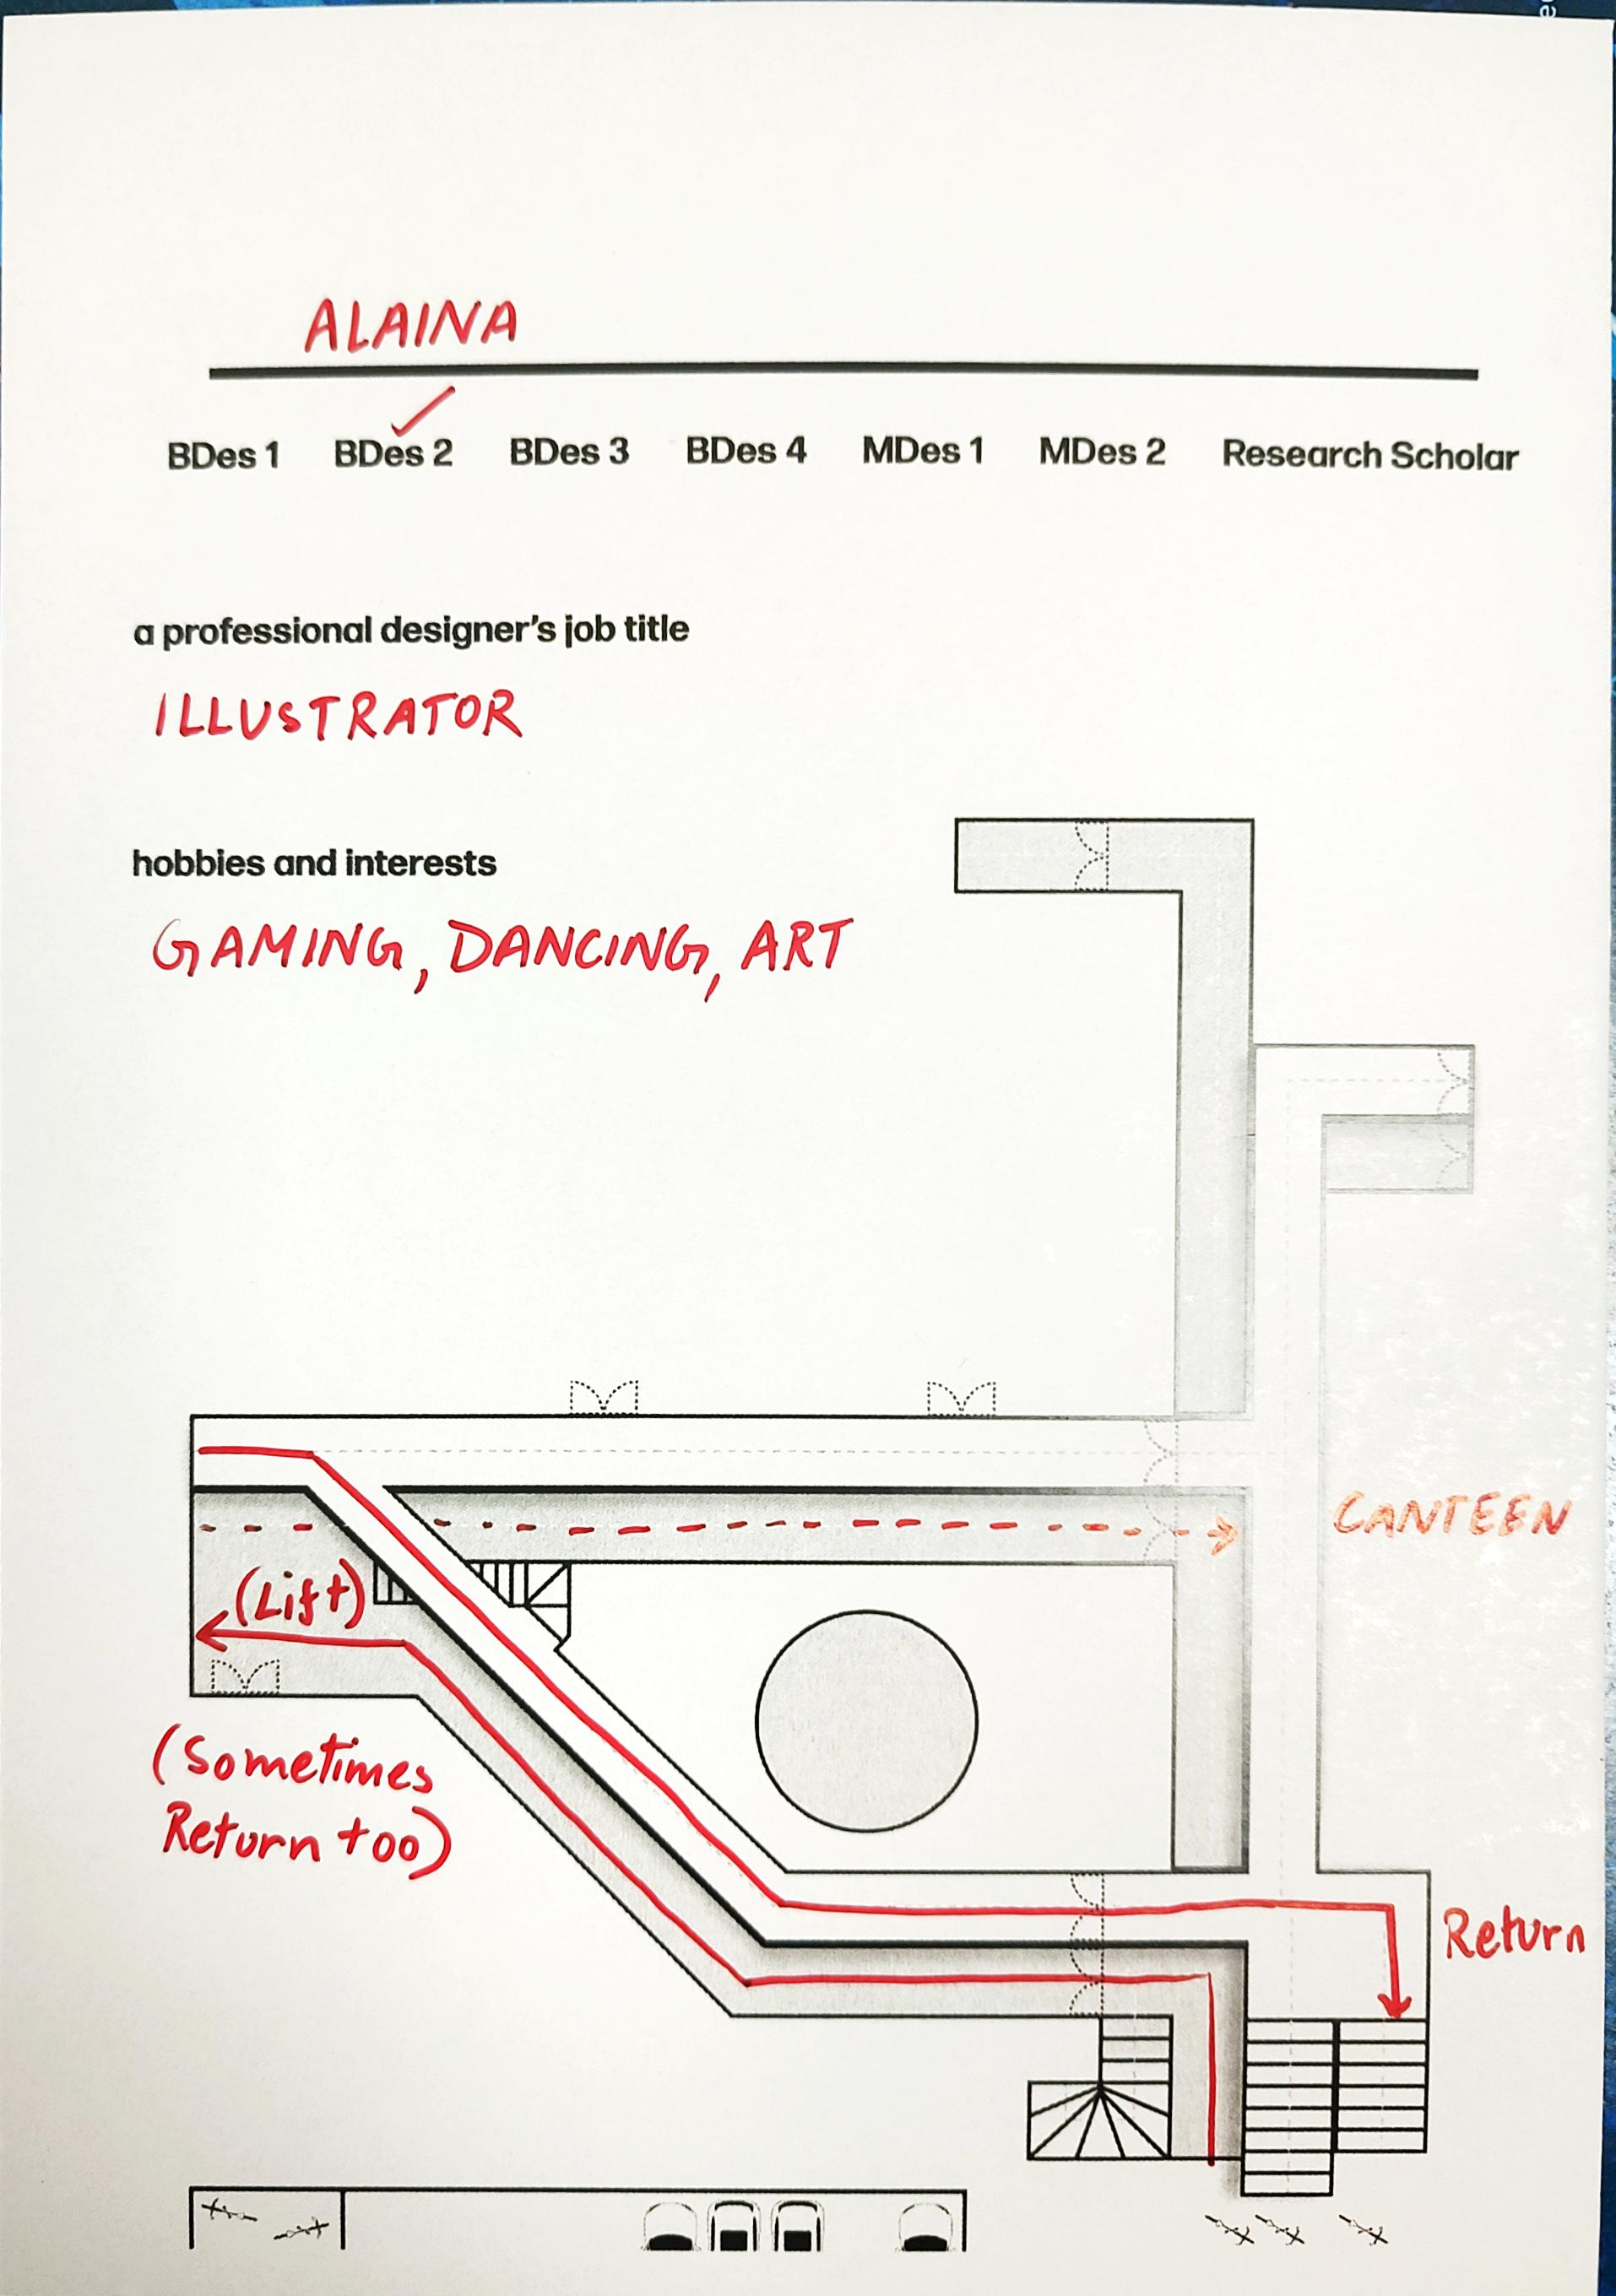 ALAINA
BDes 1 BDes 2 BDes 3 BDes 4 MDes 1 MDes 2 Research Scholar
a professional designer's job title
ILLUSTRATOR
hobbies and interests
GAMING, DANCING, ART
CANTEEN
(Lift)
(Sometimes
Return too)
Return